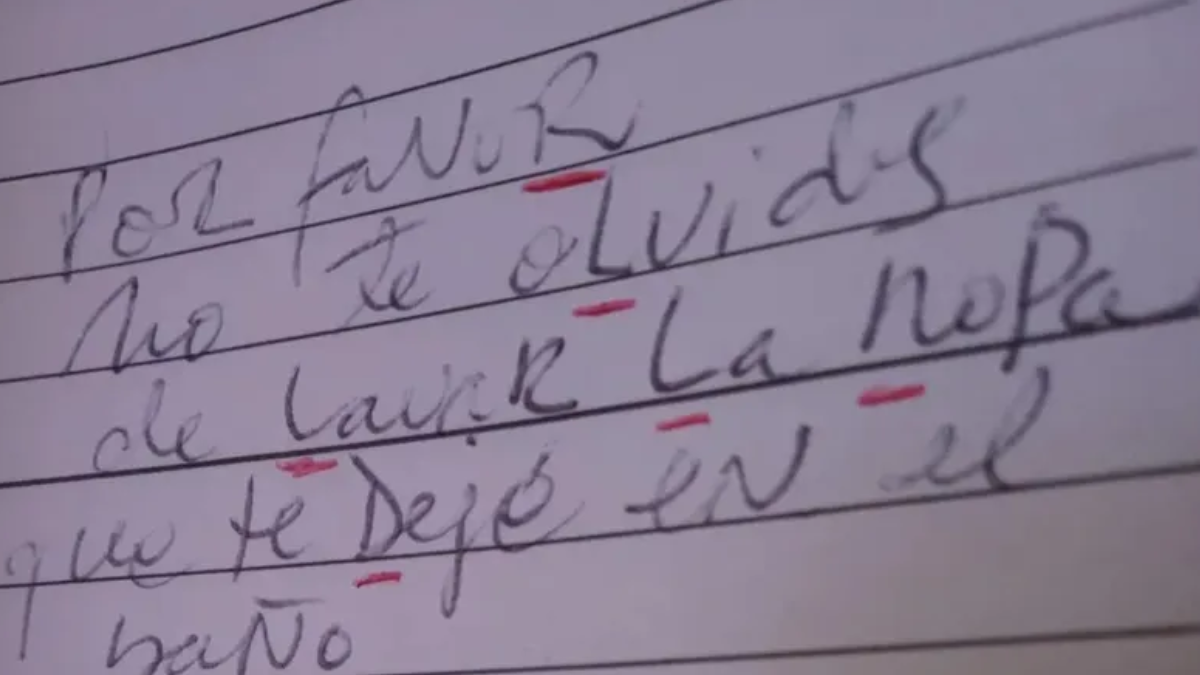 Por favoR
No te oLvides
de LavaR La Ropa
que te Dejé eN el
baÑo